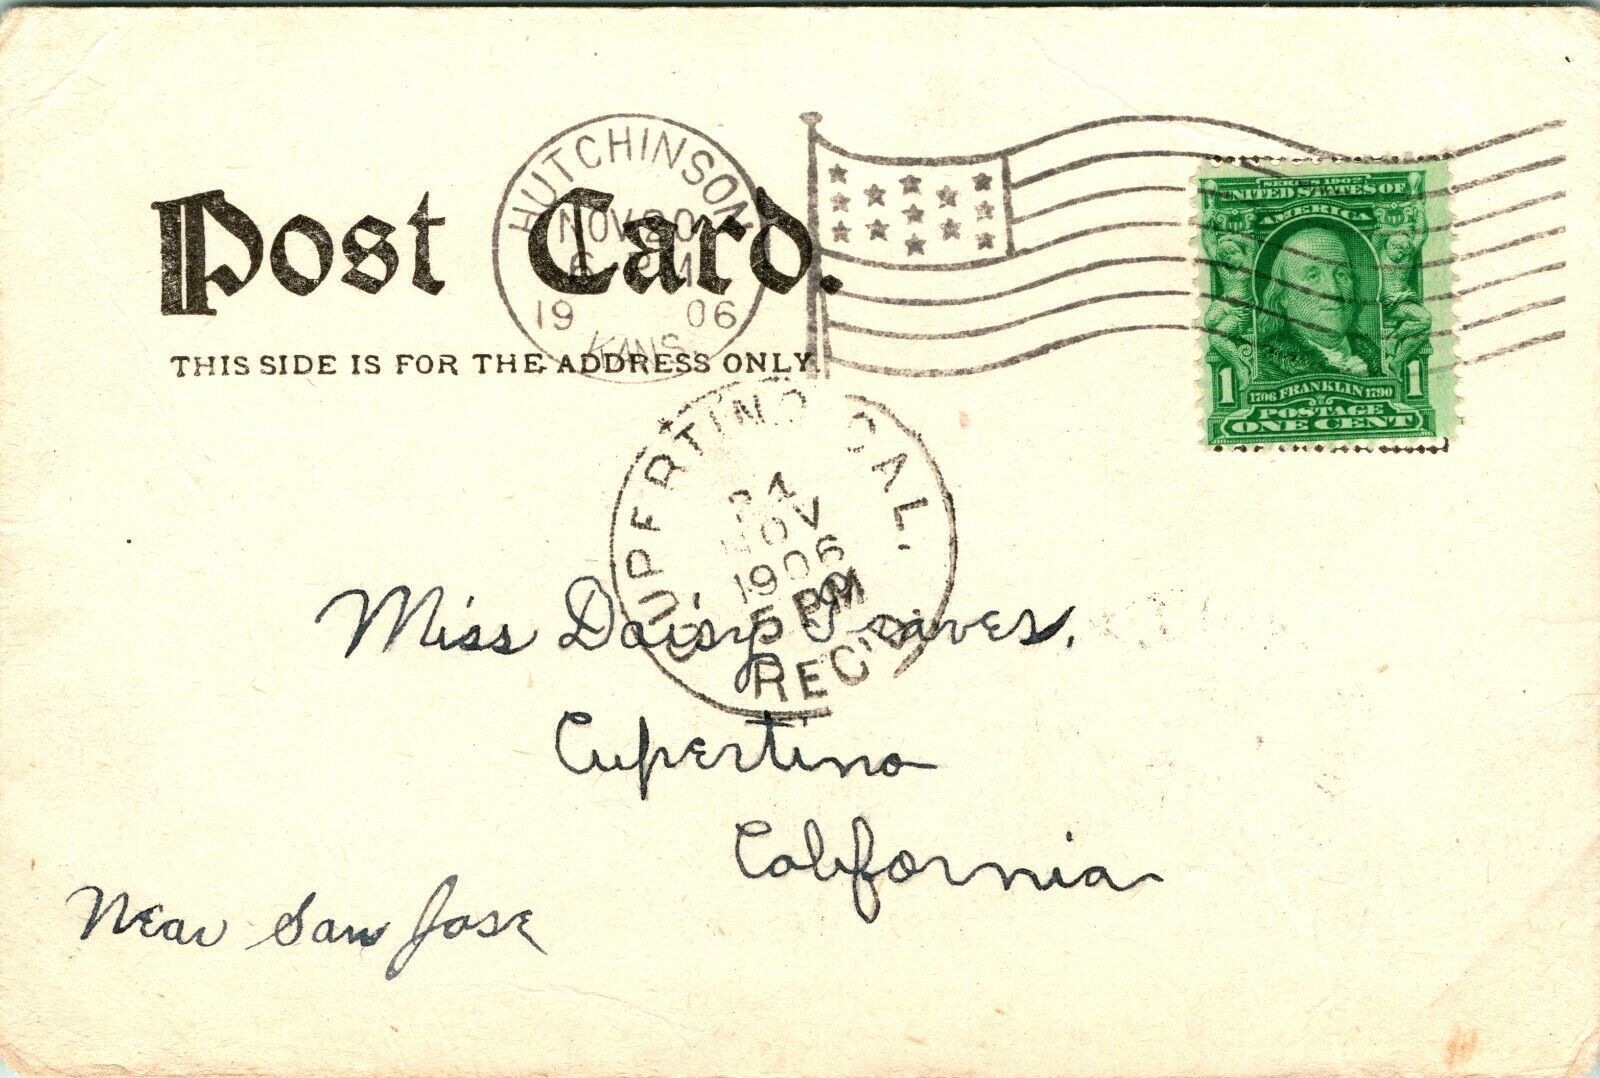 HUTCHINSON
NOV 20
6 PM
19 06
KANS.
Post Card.
THIS SIDE IS FOR THE ADDRESS ONLY.
SERIES 1902
UNITED STATES OF
AMERICA
1 1706 FRANKLIN 1790 1
POSTAGE
ONE CENT
CUPERTINO, CAL.
24
NOV
1906
PM
REC'D
Miss Daisy
Cupertino
California
Near San Jose